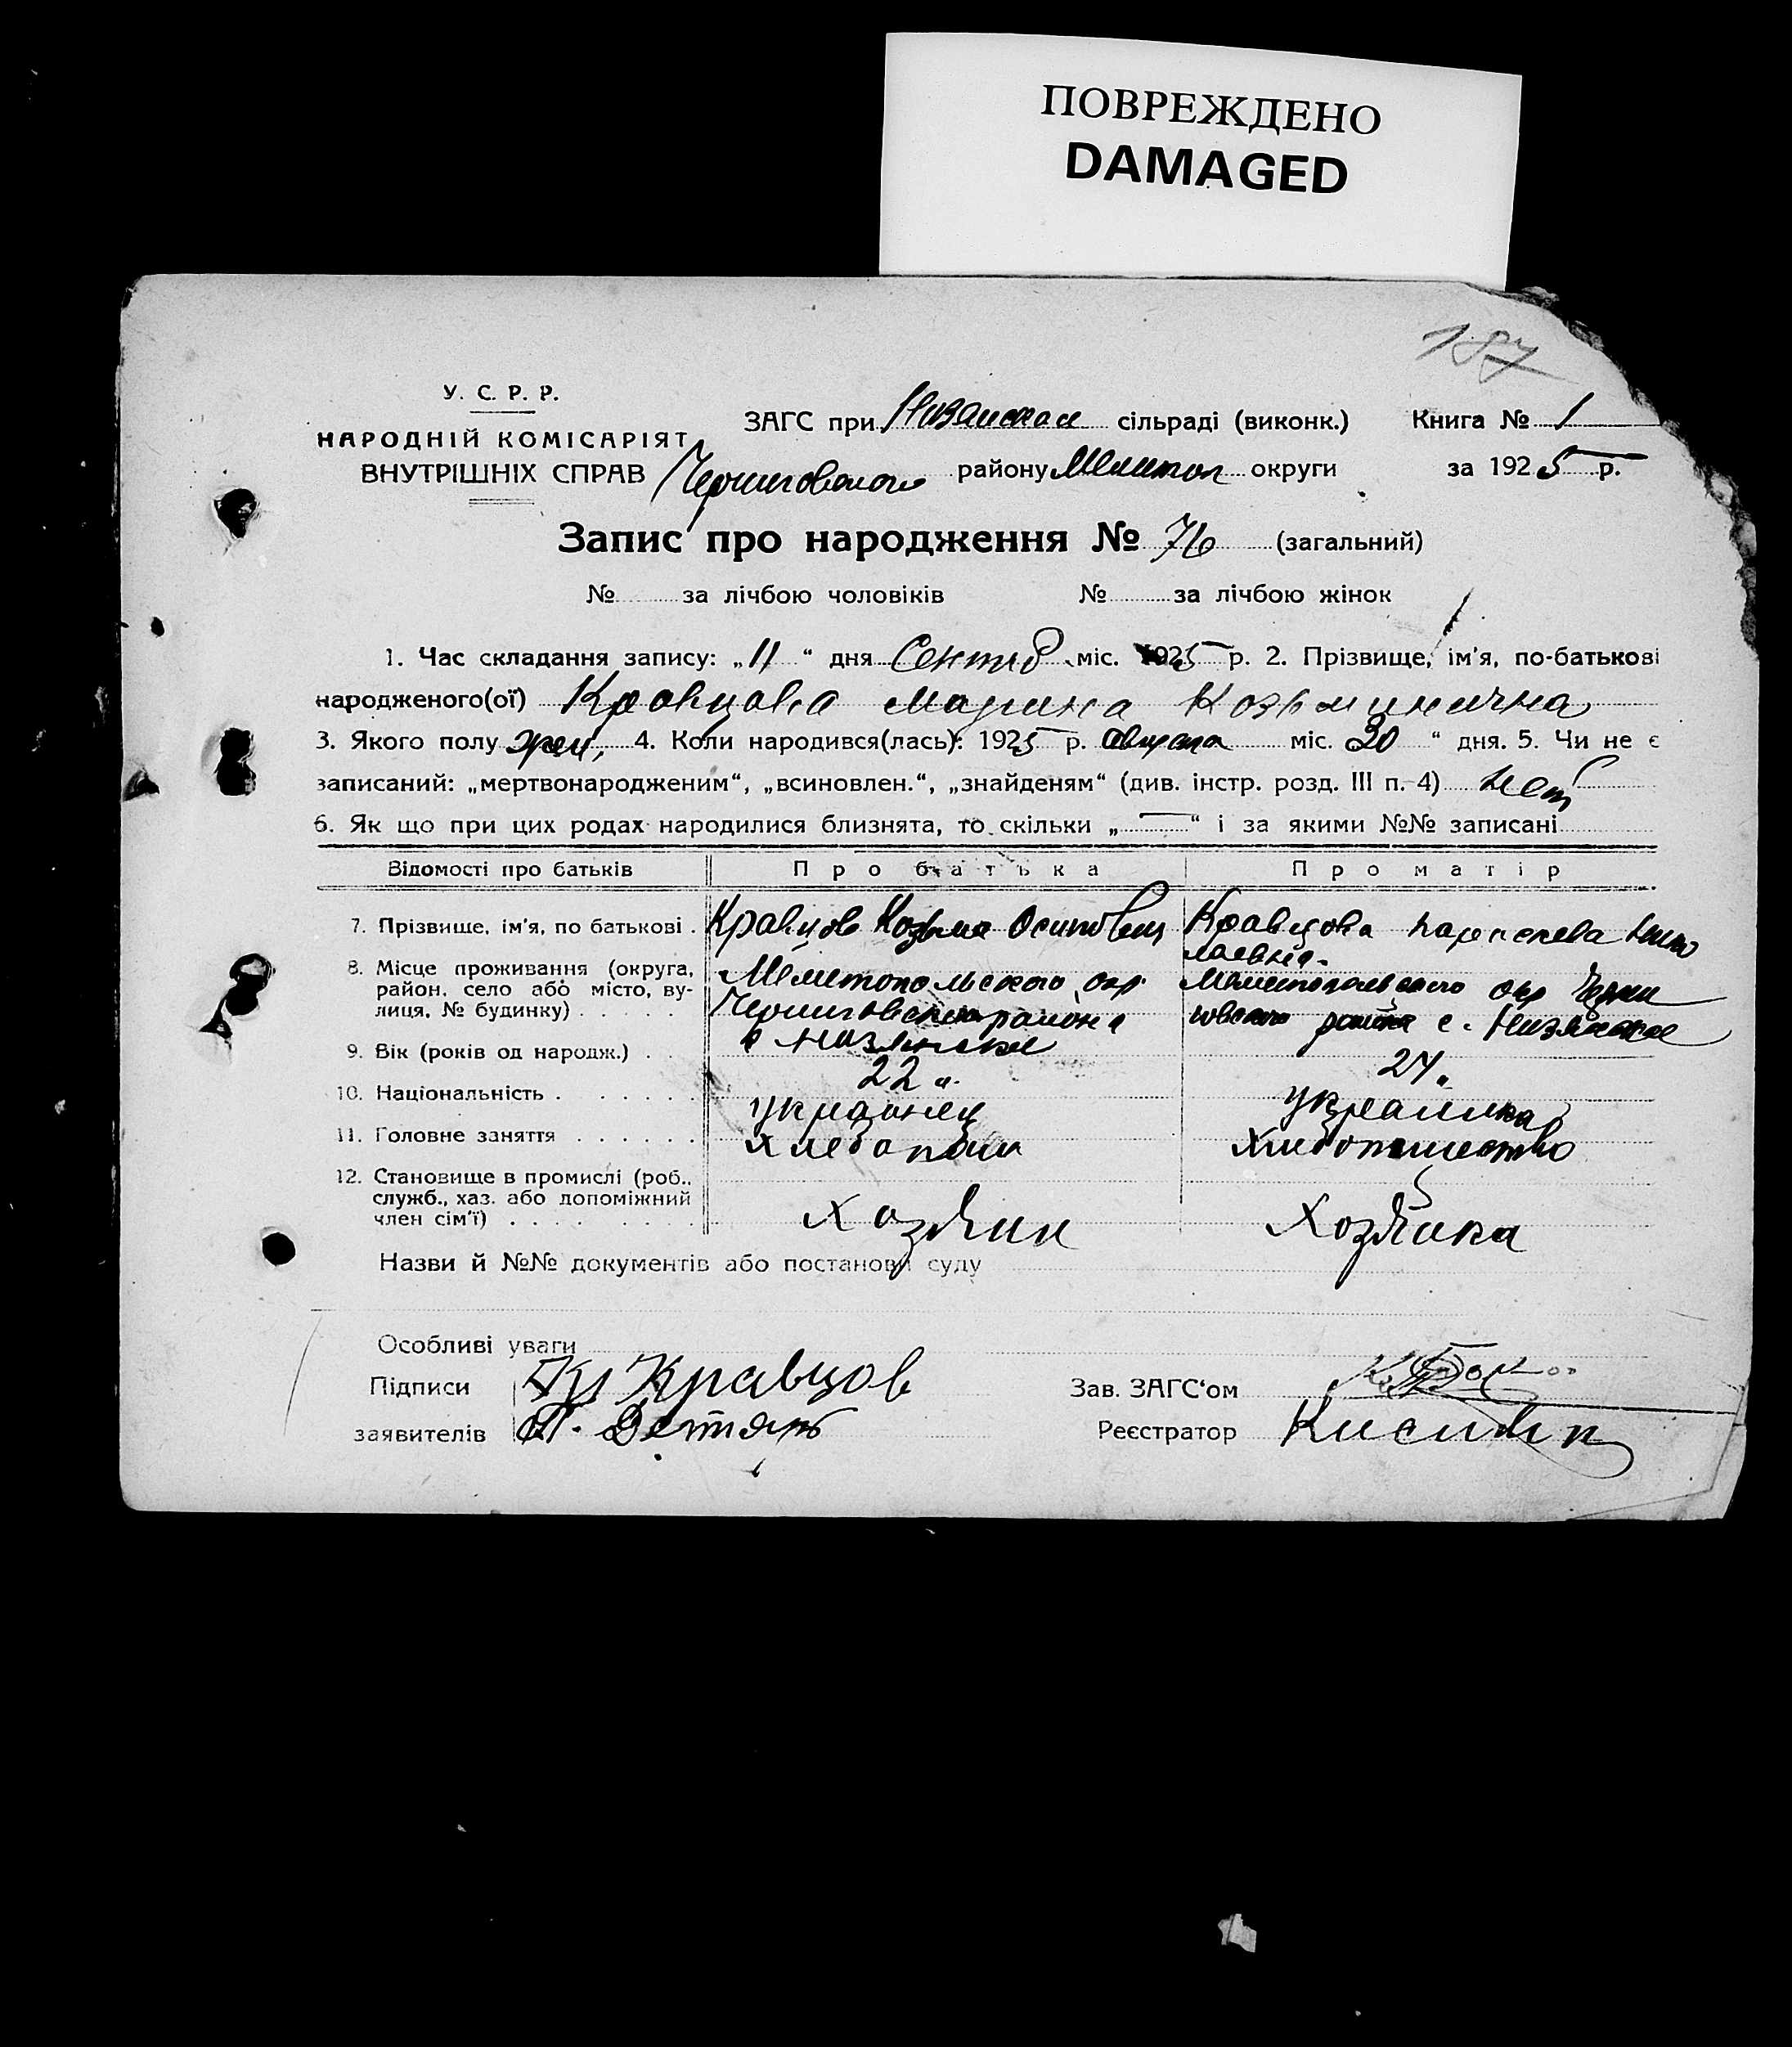 ПОВРЕЖДЕНО
DAMAGED
187
У. С. Р. Р.
НАРОДНІЙ КОМІСАРІЯТ
ВНУТРІШНІХ СПРАВ
ЗАГС при сільраді (виконк.) Книга № 1
Черниговского району Мелитоп округи за 1925 р.
Запис про народження № 76 (загальний)
№ за лічбою чоловіків № за лічбою жінок
1. Час складання запису: „11“ дня Сентяб міс. 1925 р. 2. Прізвище, ім'я, по-батькові
народженого(ої) Кравцова Марина Козьминична
3. Якого полу жен, 4. Коли народився(лась): 1925 р. августа міс. 30 “ дня. 5. Чи не є
записаний: „мертвонародженим“, „всиновлен.“, „знайденям“ (див. інстр. розд. III п. 4) нет
6. Як що при цих родах народилися близнята, то скільки „—“ і за якими №№ записані
Відомості про батьків Про батька Про матір
7. Прізвище, ім'я, по батькові . Кравцов Козьма Осипович Кравцова Нико
лаевна.
8. Місце проживання (округа, район, село або місто, вулиця, № будинку) . . . . .
Мелитопольского окр Мелитопольского окр Черни
Черниговского района говского района с. Низянское
с Низянское
9. Вік (років од народж.) . . 22 24
10. Національність . . . . . . украинец украинка
11. Головне заняття . . . . . . хлебопаш хлебопашество
12. Становище в промислі (роб., служб., хаз. або допоміжний член сім'ї) . . . . . . . .
Хозяин Хозяйка
Назви й №№ документів або постанови суду
Особливі уваги
Підписи Кравцов Зав. ЗАГС‘ом
заявителів Реєстратор